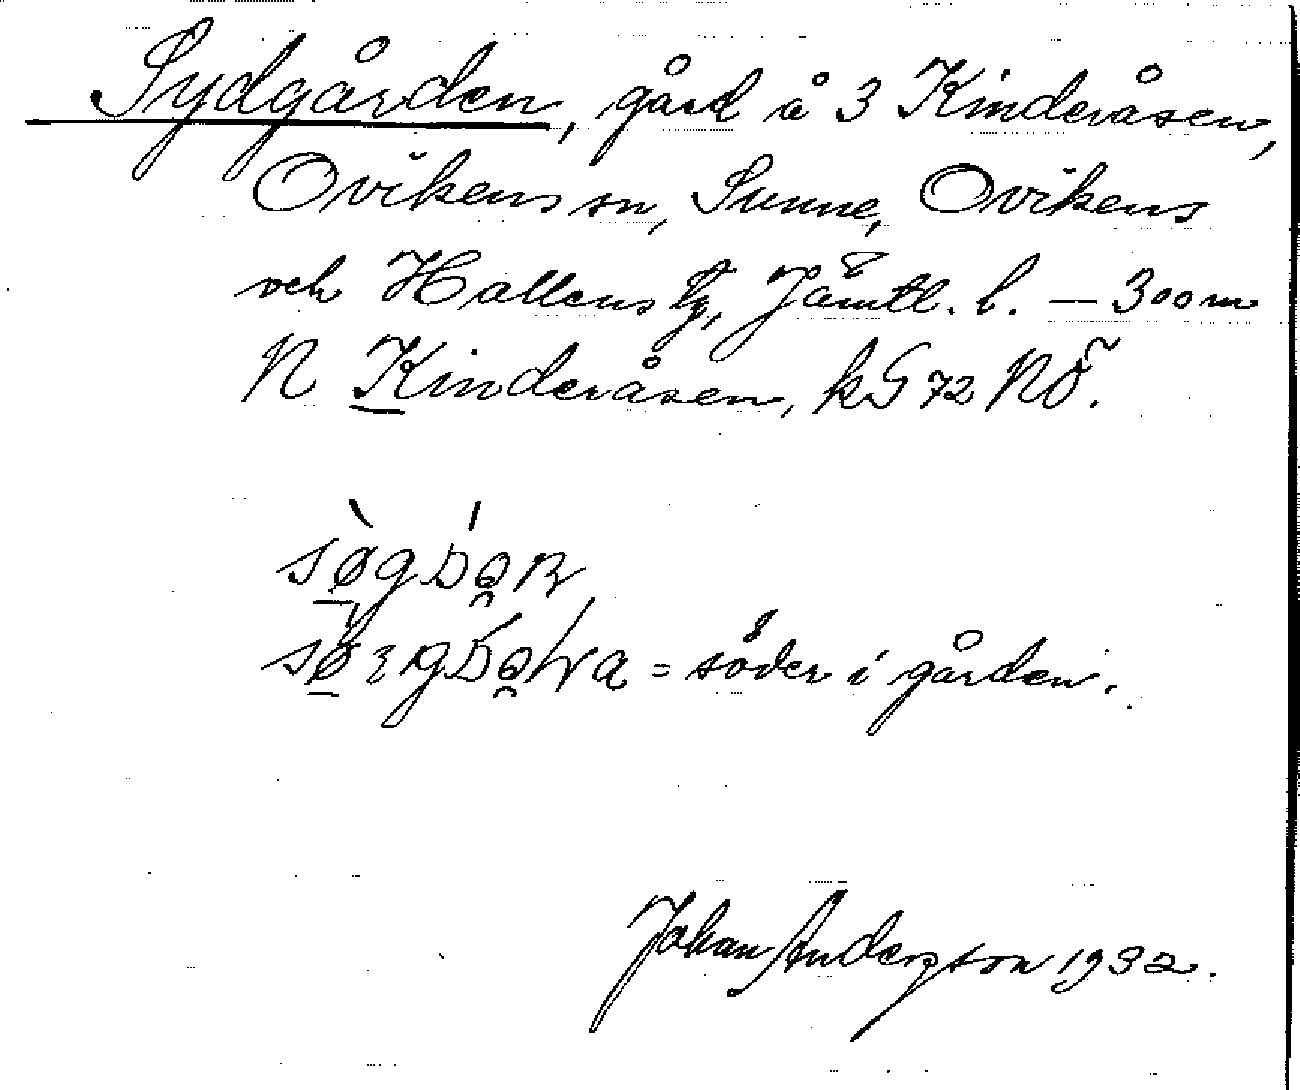 Sydgården, gård å 3 Kinderåsen,
Ovikens sn, Sunne, Ovikens
och Hallens tg, Jämtl. l. — 300 m
N Kinderåsen, kG 72 NÖ.
= söder i gården.
Johan Anderzson 1932.